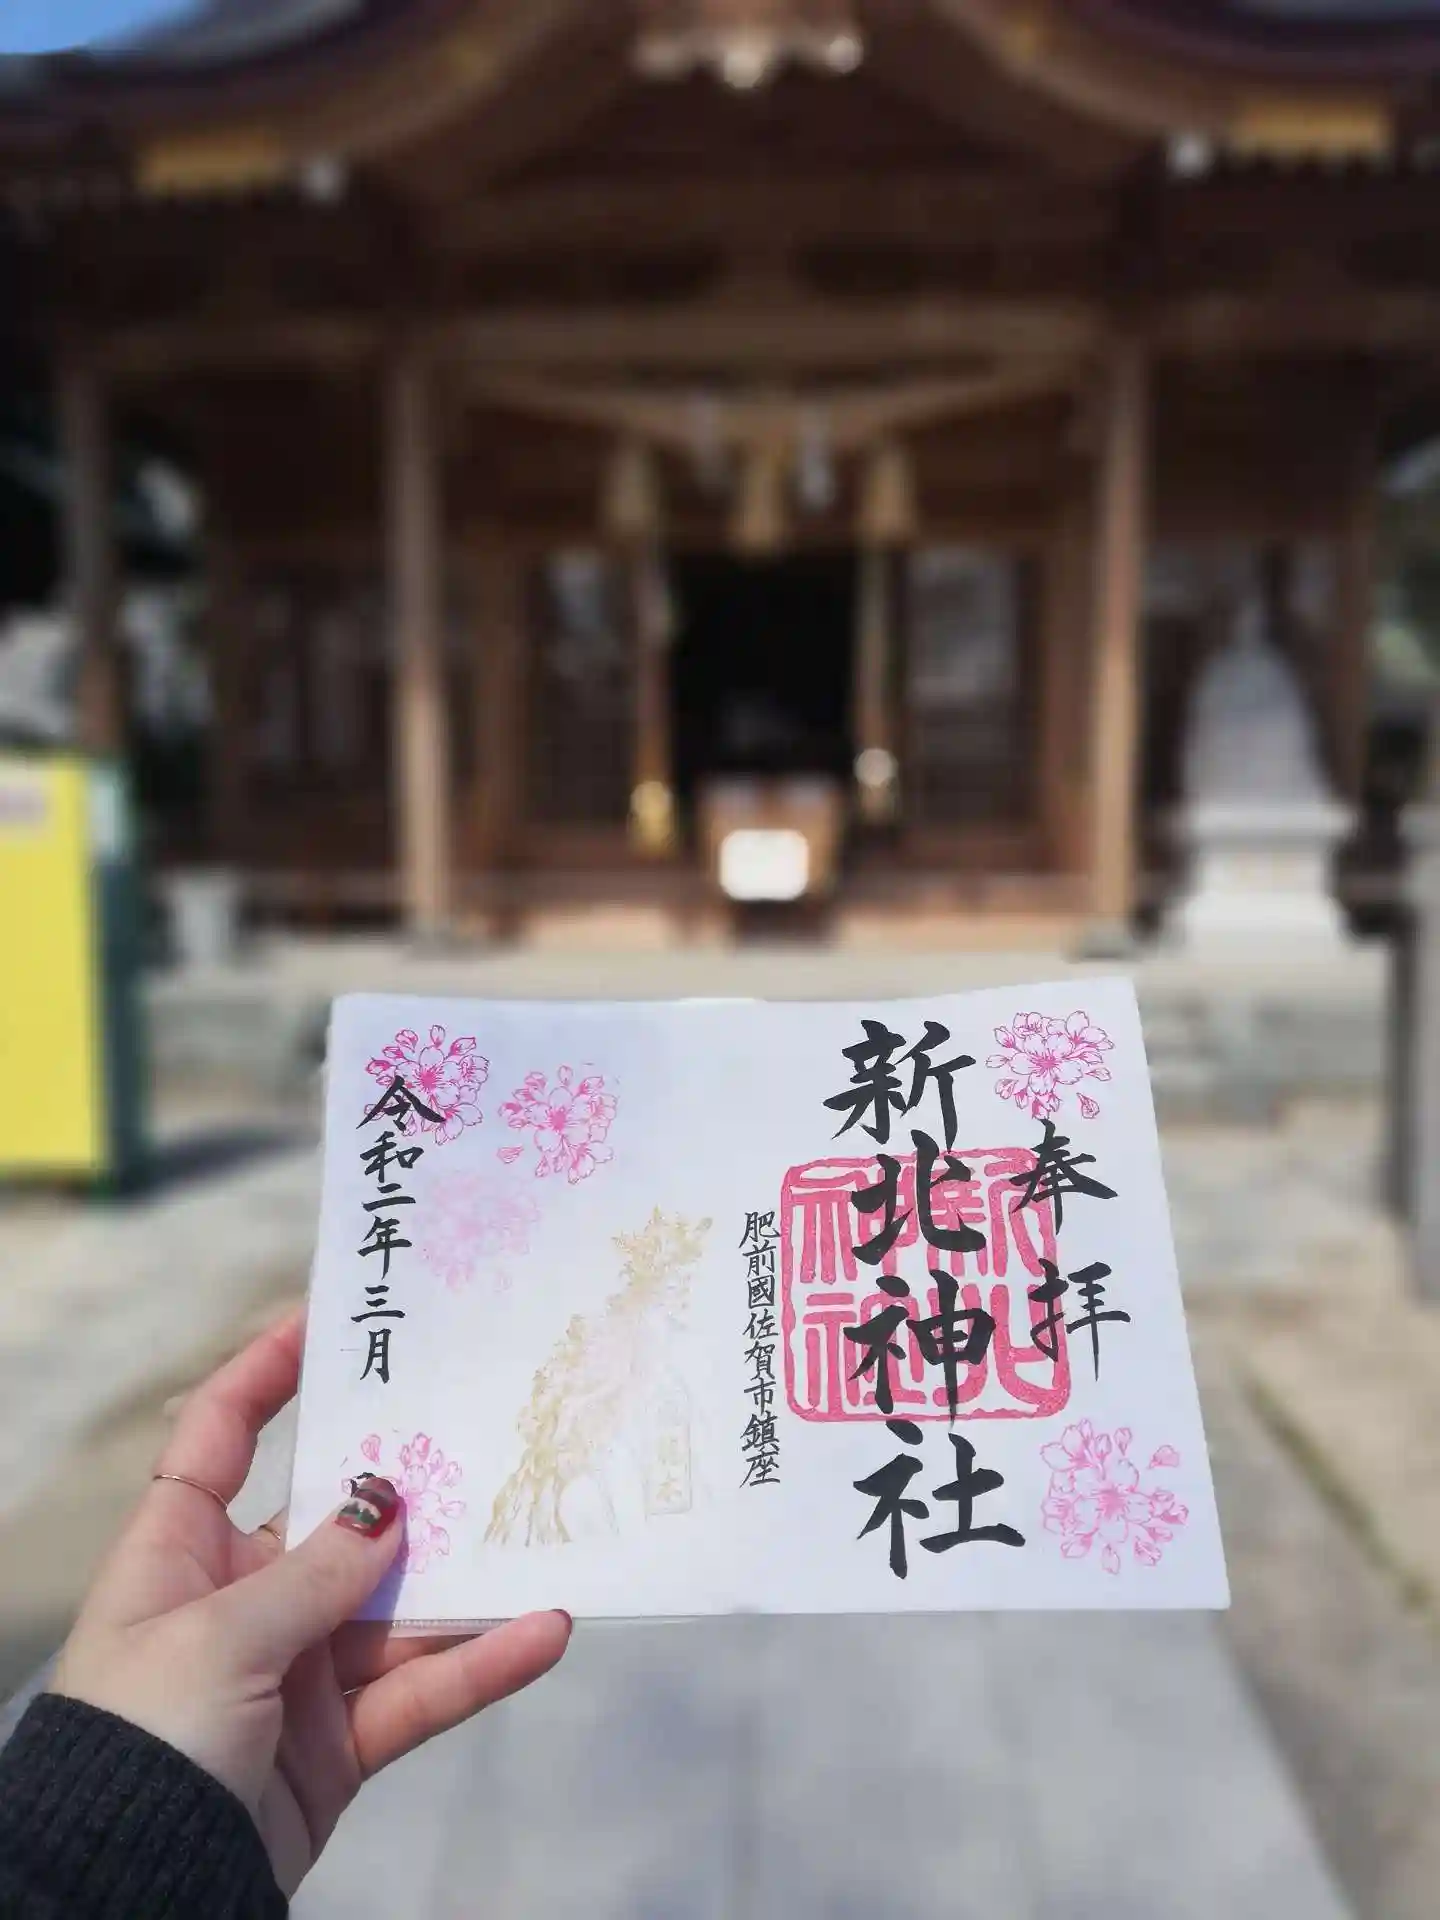 奉拝
新北神社
肥前國佐賀市鎮座
令和二年三月
新北神社